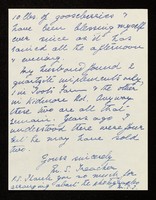 10 lbs. of gooseberries &
have been blessing myself
ever since as it has
rained all the afternoon
& evening.
My husband found 2
quartzite implements
1 in Foots Farm & the other
in Widmore Rd. Anyway
these two are all that
remain. Years ago I
understood there were four
but he may have sold
two.
Yours sincerely
P.S. Thank you so much for
arranging about the photography